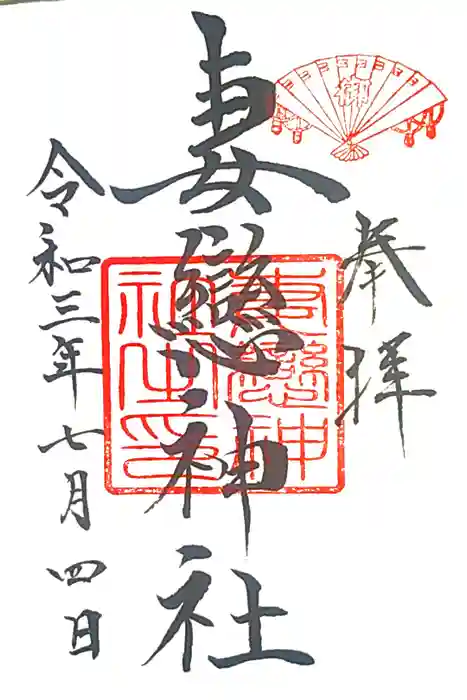 奉拝
御
妻戀神社
妻戀神
社之印
令和三年七月四日